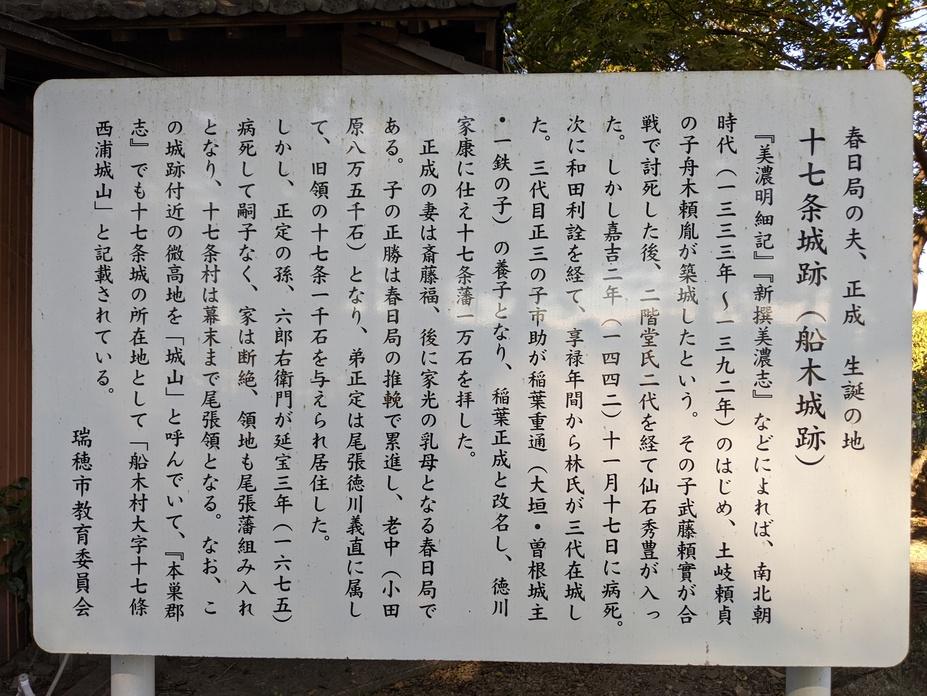 春日局の夫、正成　生誕の地
十七条城跡（船木城跡）
『美濃明細記』『新撰美濃志』などによれば、南北朝
時代（一三三三年～一三九二年）のはじめ、土岐頼貞
の子舟木頼胤が築城したという。その子武藤頼實が合
戦で討死した後、二階堂氏二代を経て仙石秀豊が入っ
た。しかし嘉吉二年（一四四二）十一月十七日に病死。
次に和田利詮を経て、享禄年間から林氏が三代在城し
た。三代目正三の子市助が稲葉重通（大垣・曽根城主
・一鉄の子）の養子となり、稲葉正成と改名し、徳川
家康に仕え十七条藩一万石を拝した。
正成の妻は斎藤福、後に家光の乳母となる春日局で
ある。子の正勝は春日局の推輓で累進し、老中（小田
原八万五千石）となり、弟正定は尾張徳川義直に属し
て、旧領の十七条一千石を与えられ居住した。
しかし、正定の孫、六郎右衛門が延宝三年（一六七五）
病死して嗣子なく、家は断絶、領地も尾張藩組み入れ
となり、十七条村は幕末まで尾張領となる。なお、こ
の城跡付近の微高地を「城山」と呼んでいて、『本巣郡
志』でも十七条城の所在地として「船木村大字十七條
西浦城山」と記載されている。
瑞穂市教育委員会